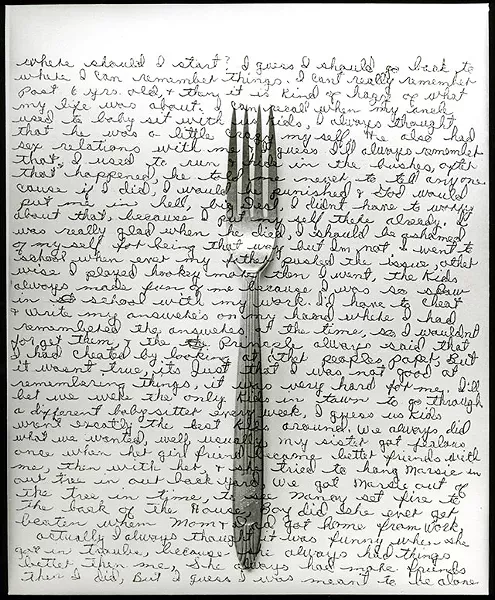 where should I start? I guess I should go back to
where I can remember things. I can't really remember
past 6 yrs. old, & then it is kind of hazy of what
my life was about. I can recall when my uncle
used to baby sit with kids, I always thought
that he was a little crazy my self. He also had
sex relations with m guess I'll always remember
that, I used to run hide in the bushes, after
that happened, he told me never to tell anyone
cause if I did, I would be punished & God would
put me in hell, big Deal, I didn't have to worry
about that, because I put my self there already. I
was really glad when he died, I should be ashamed
of my self for being that way but Im not. I went to
school when ever my father pushed the issue, other
wise I played hooky more then I went, the kids
always made fun of me because I was so slow
in school with my work. I'd have to cheat
& write my answere's on my hand where I had
remembered the answeres at the time, so I wouldn't
forget them, & the people always said that
I had cheated by looking at other peoples paper, But
it wasn't true, its Just that I was not good at
remembering things, it was very hard for me. I'll
bet we were the only kids in town to go through
a different baby-sitter every week, I guess us kids
went exactly the best kids around. We always did
what we wanted, well usually my sister got jealous
once when her girl friend became better friends with
me, then with her, & she tried to hang Marsie in
our tree in our back yard. We got Marsie out of
the tree in time, to see Nancy set fire to
the back of the House, Boy did she ever get
beaten when Mom & Dad got home from work,
actually I always thought it was funny when she
got in trouble, because she always had things
better then me, She always had make friends
then I did, But I guess I was meant to be alone